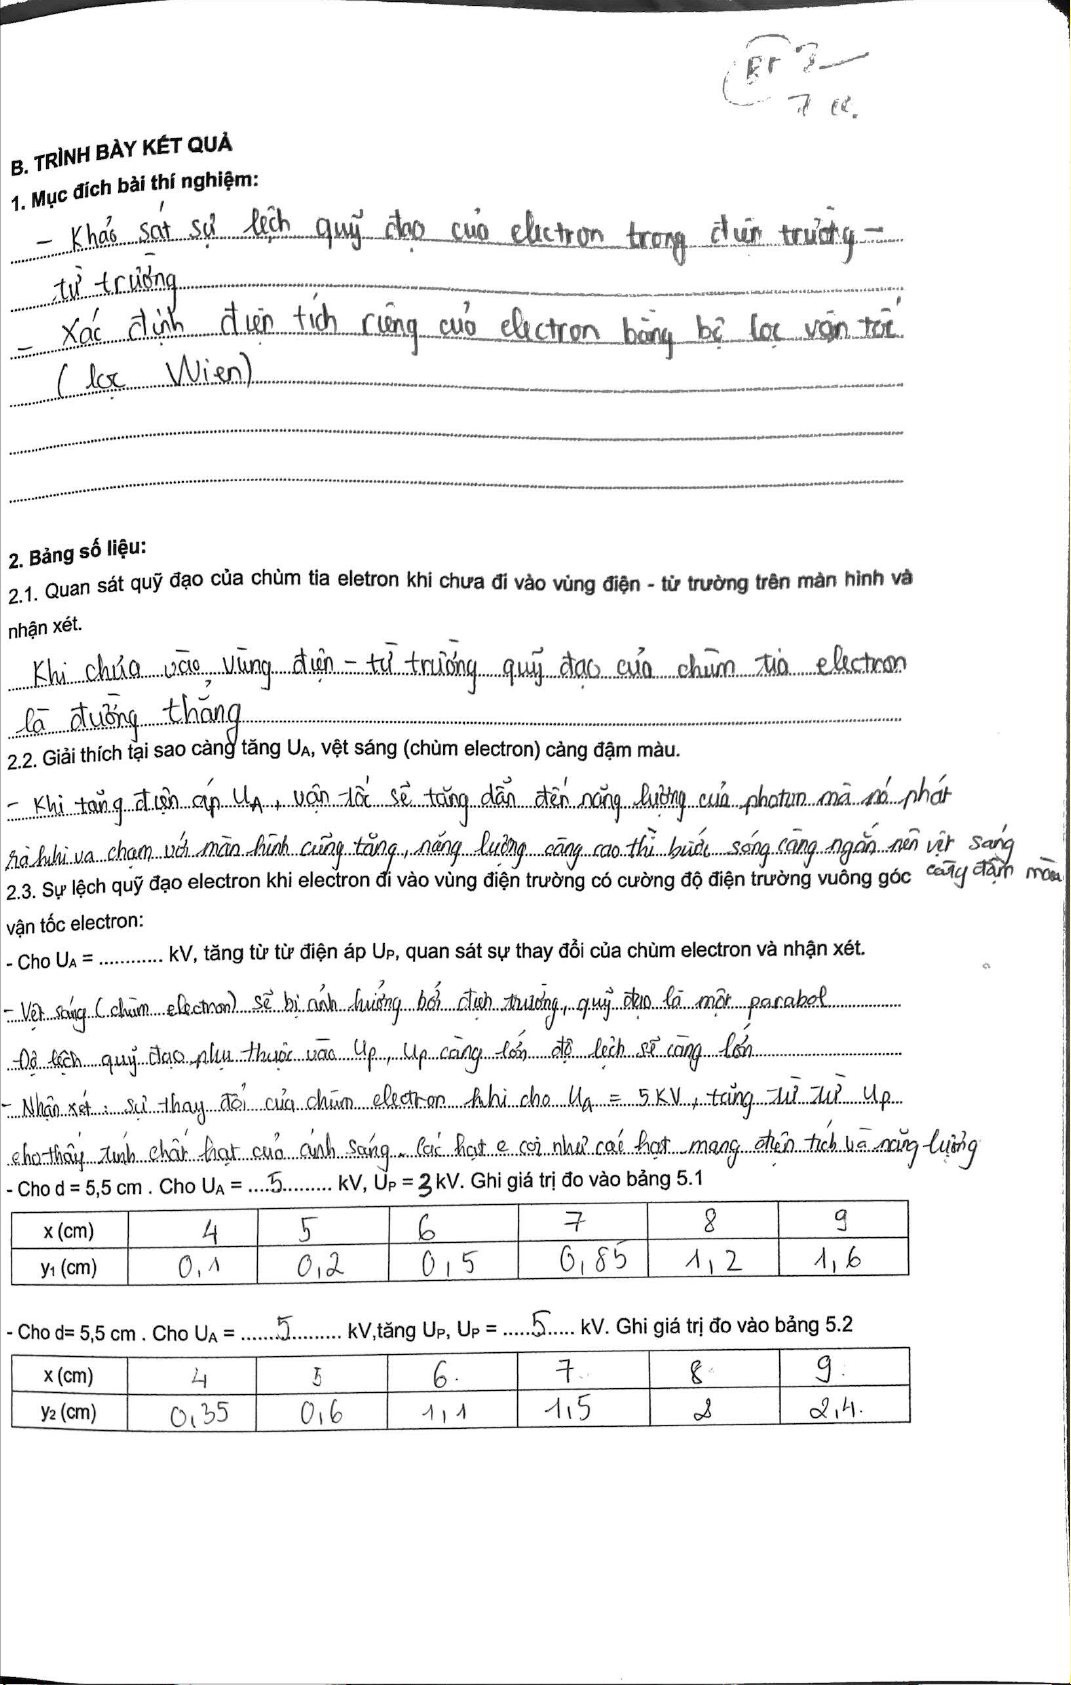 B. TRÌNH BÀY KẾT QUẢ
1. Mục đích bài thí nghiệm:
- Khảo sát sự lệch quỹ đạo của electron trong điện trường -
từ trường
- Xác định điện tích riêng của electron bằng bộ lọc vận tốc
( lọc Wien)
2. Bảng số liệu:
2.1. Quan sát quỹ đạo của chùm tia eletron khi chưa đi vào vùng điện - từ trường trên màn hình và
nhận xét.
Khi chưa vào vùng điện - từ trường quỹ đạo của chùm tia electron
là đường thẳng
2.2. Giải thích tại sao càng tăng UA, vệt sáng (chùm electron) càng đậm màu.
- Khi tăng điện áp UA, vận tốc sẽ tăng dẫn đến năng lượng của photon mà nó phát
ra khi va chạm với màn hình cũng tăng, năng lượng càng cao thì bước sóng càng ngắn nên vệt sáng
càng đậm màu
2.3. Sự lệch quỹ đạo electron khi electron đi vào vùng điện trường có cường độ điện trường vuông góc
vận tốc electron:
- Cho UA = ............ kV, tăng từ từ điện áp UP, quan sát sự thay đổi của chùm electron và nhận xét.
- Vệt sáng (chùm electron) sẽ bị ảnh hưởng bởi điện trường, quỹ đạo là một parabol
Độ lệch quỹ đạo phụ thuộc vào Up, Up càng lớn độ lệch sẽ càng lớn
- Nhận xét: sự thay đổi của chùm electron khi cho UA = 5KV, tăng từ từ Up
cho thấy tính chất hạt của ánh sáng. Các hạt e coi như các hạt mang điện tích và năng lượng
- Cho d = 5,5 cm . Cho UA = ....5......... kV, UP = 3 kV. Ghi giá trị đo vào bảng 5.1
x (cm) 4 5 6 7 8 9
y1 (cm) 0,1 0,2 0,5 0,85 1,2 1,6
- Cho d= 5,5 cm . Cho UA = ......5......... kV,tăng UP, UP = .....5..... kV. Ghi giá trị đo vào bảng 5.2
x (cm) 4 5 6. 7. 8. 9.
y2 (cm) 0,35 0,6 1,1 1,5 2 2,4.